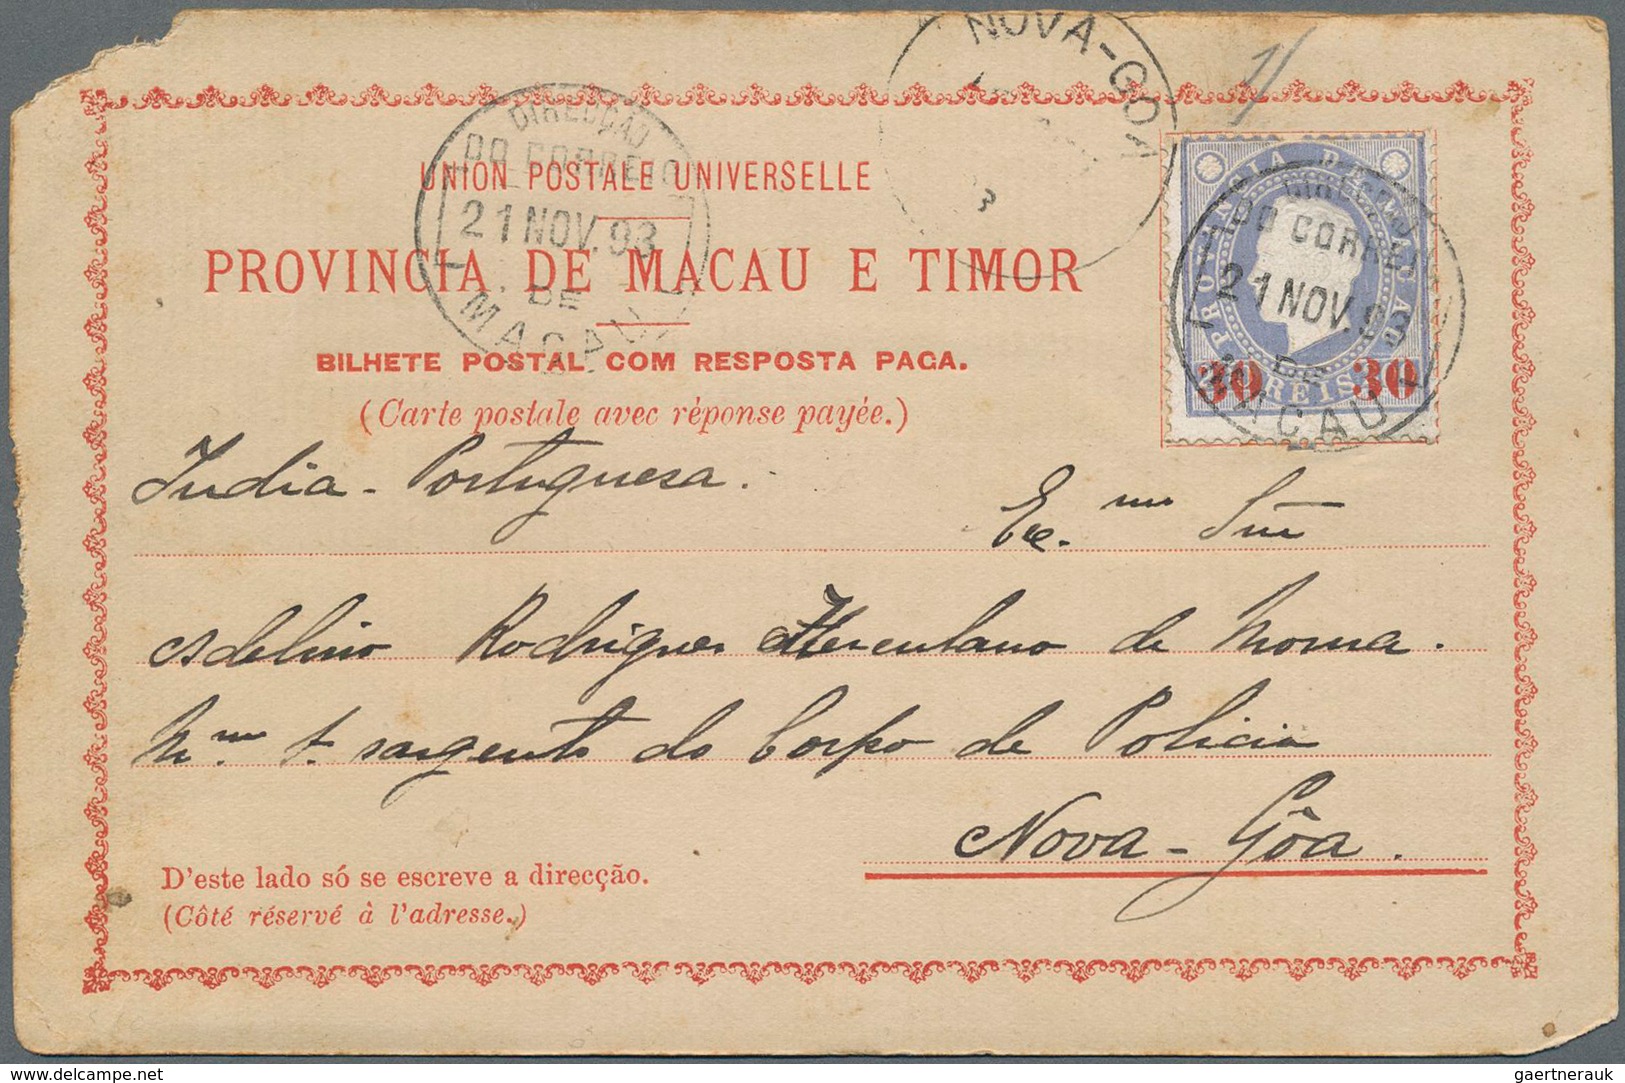 NOVA-GOA
1/
DIRECÇÃO
DO CORREIO
21 NOV. 93
DE
MACAU
UNION POSTALE UNIVERSELLE
PROVINCIA DE MACAU E TIMOR
BILHETE POSTAL COM RESPOSTA PAGA.
(Carte postale avec réponse payée.)
PROVINCIA DE MACAU
30 REIS 30
DIRECÇÃO
DO CORREIO
21 NOV. 93
DE
MACAU
India - Portuguesa.
Exc.mo Snr
Adelino Rodrigues Herculano de Moura.
M.mo 1. sargento do Corpo de Policia
Nova - Gôa.
D'este lado só se escreve a direcção.
(Côté réservé à l'adresse.)
delcampe.net
gaertnerauk